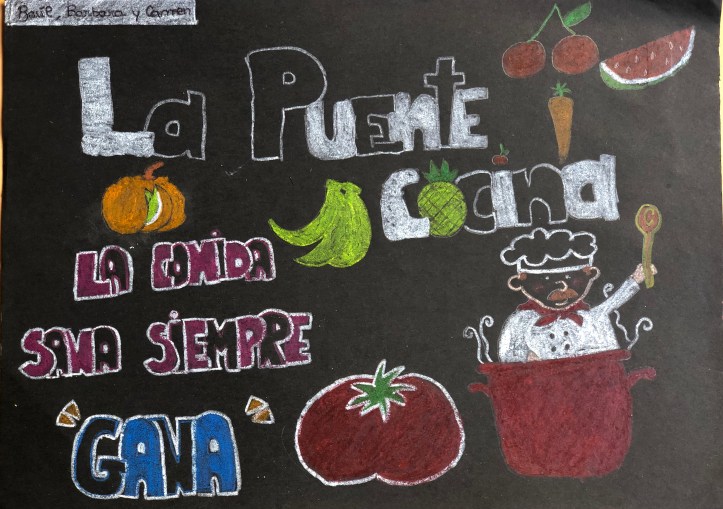 Raúl, Barbara y Carmen
La Puente
Cocina
LA COMIDA
SANA SIEMPRE
"GANA"